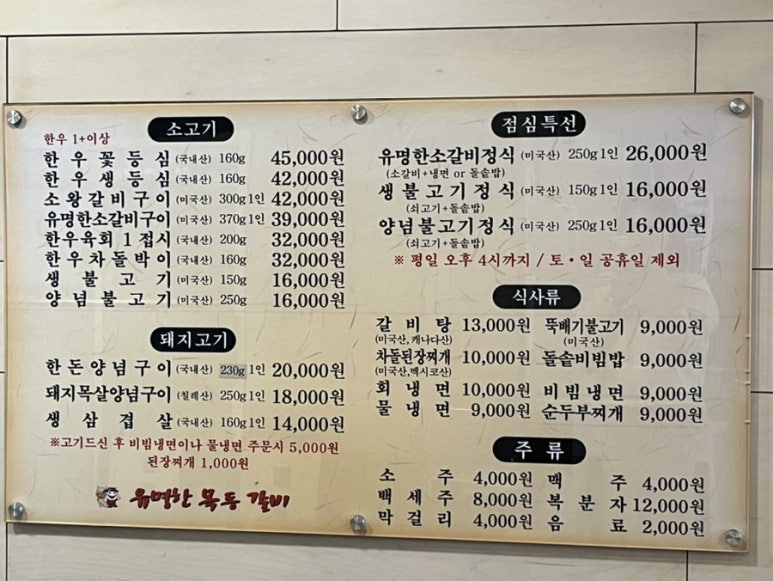 소고기
한우 1+이상
한우꽃등심 (국내산) 160g 45,000원
한우생등심 (국내산) 160g 42,000원
소왕갈비구이 (미국산) 300g 1인 42,000원
유명한소갈비구이 (미국산) 370g 1인 39,000원
한우육회 1 접시 (국내산) 200g 32,000원
한우차돌박이 (국내산) 160g 32,000원
생불고기 (미국산) 150g 16,000원
양념불고기 (미국산) 250g 16,000원
돼지고기
한돈양념구이 (국내산) 230g 1인 20,000원
돼지목살양념구이 (칠레산) 250g 1인 18,000원
생삼겹살 (국내산) 160g 1인 14,000원
※고기드신 후 비빔냉면이나 물냉면 주문시 5,000원
된장찌개 1,000원
유명한 목동 갈비
점심특선
유명한소갈비정식 (미국산) 250g 1인 26,000원
(소갈비+냉면 or 돌솥밥)
생불고기정식 (미국산) 150g 1인 16,000원
(쇠고기+돌솥밥)
양념불고기정식 (미국산) 250g 1인 16,000원
(쇠고기+돌솥밥)
※ 평일 오후 4시까지 / 토·일 공휴일 제외
식사류
갈비탕 13,000원 뚝배기불고기 9,000원
(미국산, 캐나다산) (미국산)
차돌된장찌개 10,000원 돌솥비빔밥 9,000원
(미국산,멕시코산)
회냉면 10,000원 비빔냉면 9,000원
물냉면 9,000원 순두부찌개 9,000원
주류
소주 4,000원 맥주 4,000원
백세주 8,000원 복분자 12,000원
막걸리 4,000원 음료 2,000원